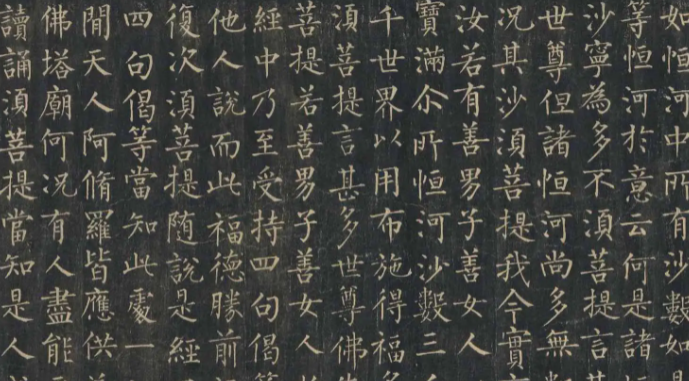 如恒河中所有沙數如
等恒河於意云何是諸
沙寧為多不須菩提言
世尊但諸恒河尚多無
況其沙須菩提我今實
汝若有善男子善女人
寶滿尒所恒河沙數三
千世界以用布施得福
須菩提言甚多世尊佛
菩提若善男子善女人
經中乃至受持四句偈
他人說而此福德勝前
復次須菩提隨說是經
四句偈等當知此處一
間天人阿脩羅皆應供
佛塔廟何況有人盡能
讀誦須菩提當知是人